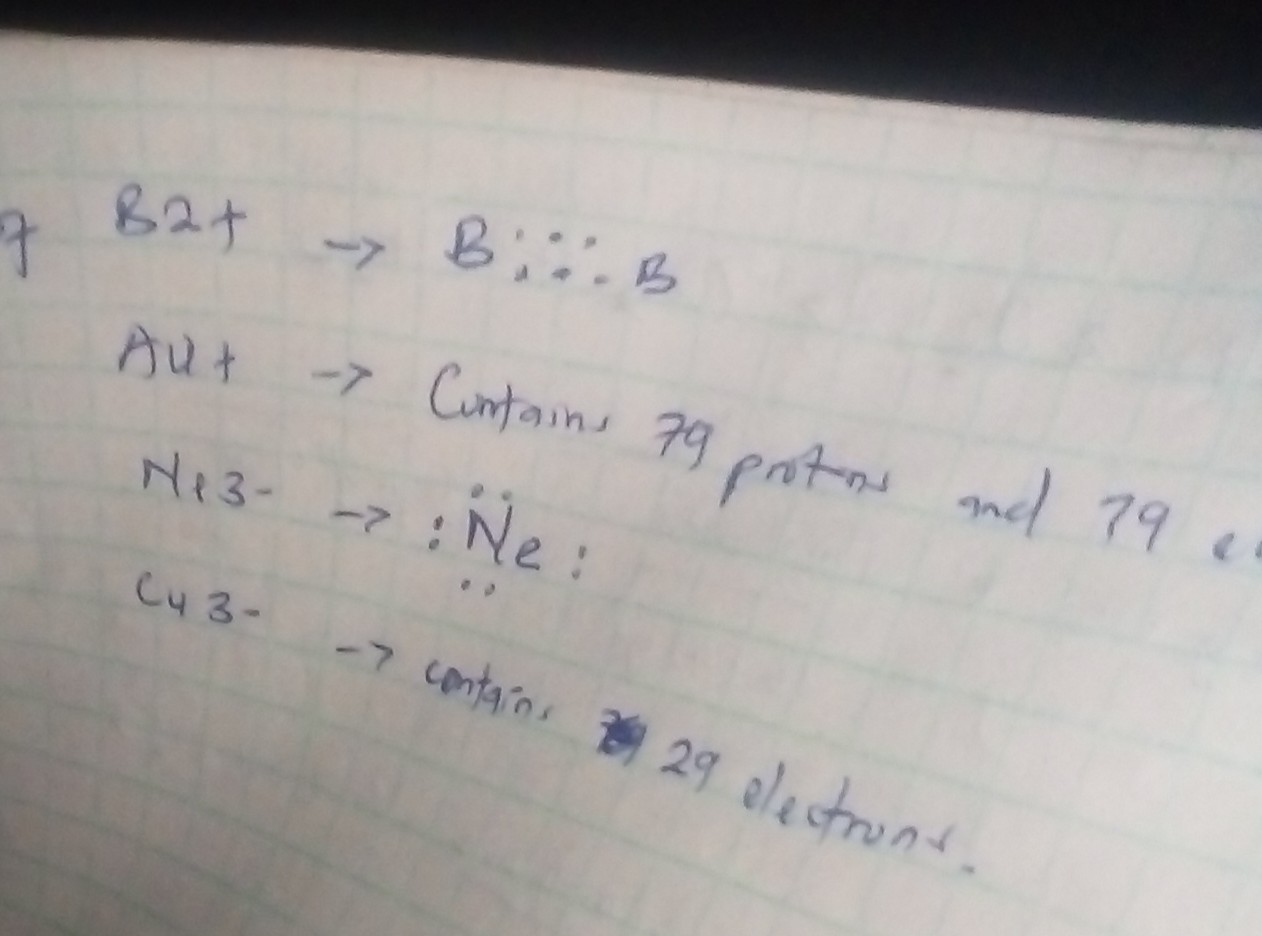 B2+ → B:::.B
Au+ → Contains 79 protons and 79
Ne3- → :Ne:
Cu3- → contains 29 electrons.